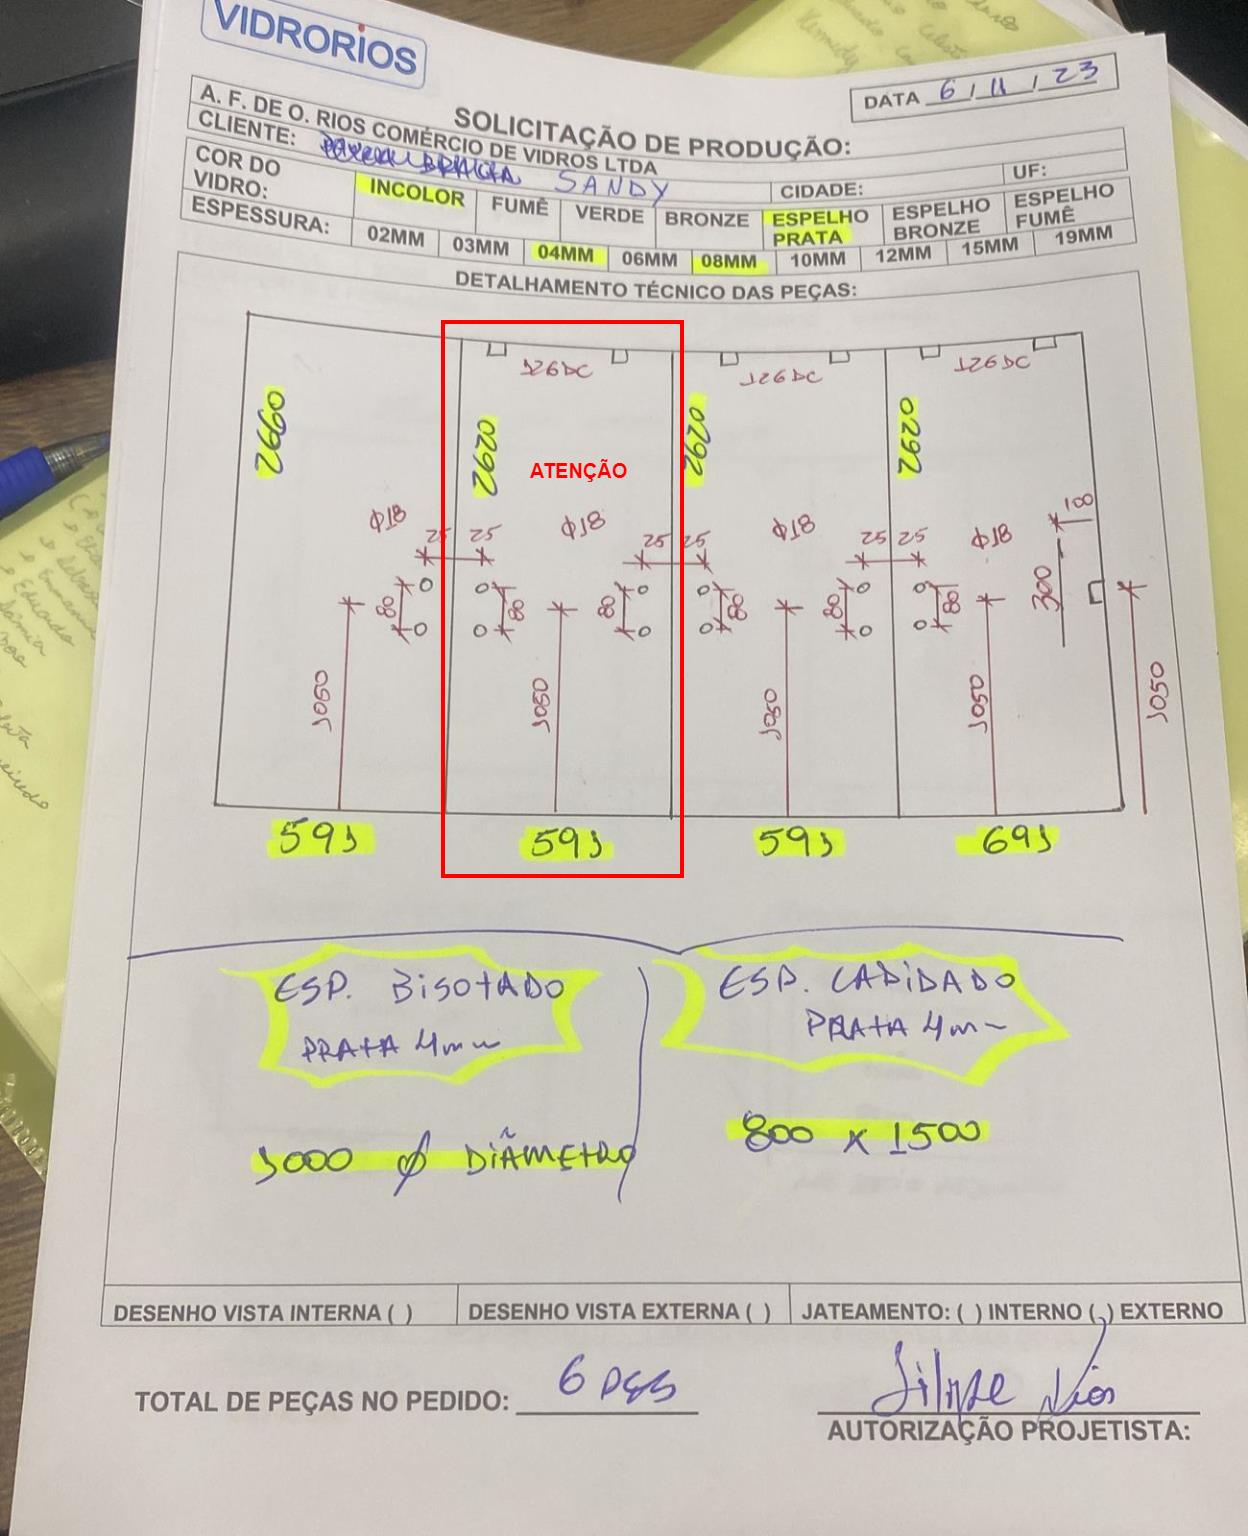 VIDRORIOS
DATA 6 / 11 / 23
SOLICITAÇÃO DE PRODUÇÃO:
A. F. DE O. RIOS COMÉRCIO DE VIDROS LTDA
CLIENTE: SANDY
CIDADE:
UF:
COR DO VIDRO: INCOLOR FUMÊ VERDE BRONZE ESPELHO PRATA ESPELHO BRONZE ESPELHO FUMÊ
ESPESSURA: 02MM 03MM 04MM 06MM 08MM 10MM 12MM 15MM 19MM
DETALHAMENTO TÉCNICO DAS PEÇAS:
126DC 126DC 126DC
2660 2620 2620 2620
ATENÇÃO
Φ18 Φ18 Φ18 Φ18 100
25 25 25 25 25 25
80 80 80 80 80 80 300
1050 1050 1050 1050 1050
591 591 591 691
ESP. BISOTADO
PRATA 4mm
ESP. LAPIDADO
PRATA 4mm
1000 Ø DIÂMETRO
800 X 1500
DESENHO VISTA INTERNA ( ) DESENHO VISTA EXTERNA ( ) JATEAMENTO: ( ) INTERNO ( ) EXTERNO
TOTAL DE PEÇAS NO PEDIDO: 6 PÇS
Filipe Rios
AUTORIZAÇÃO PROJETISTA: